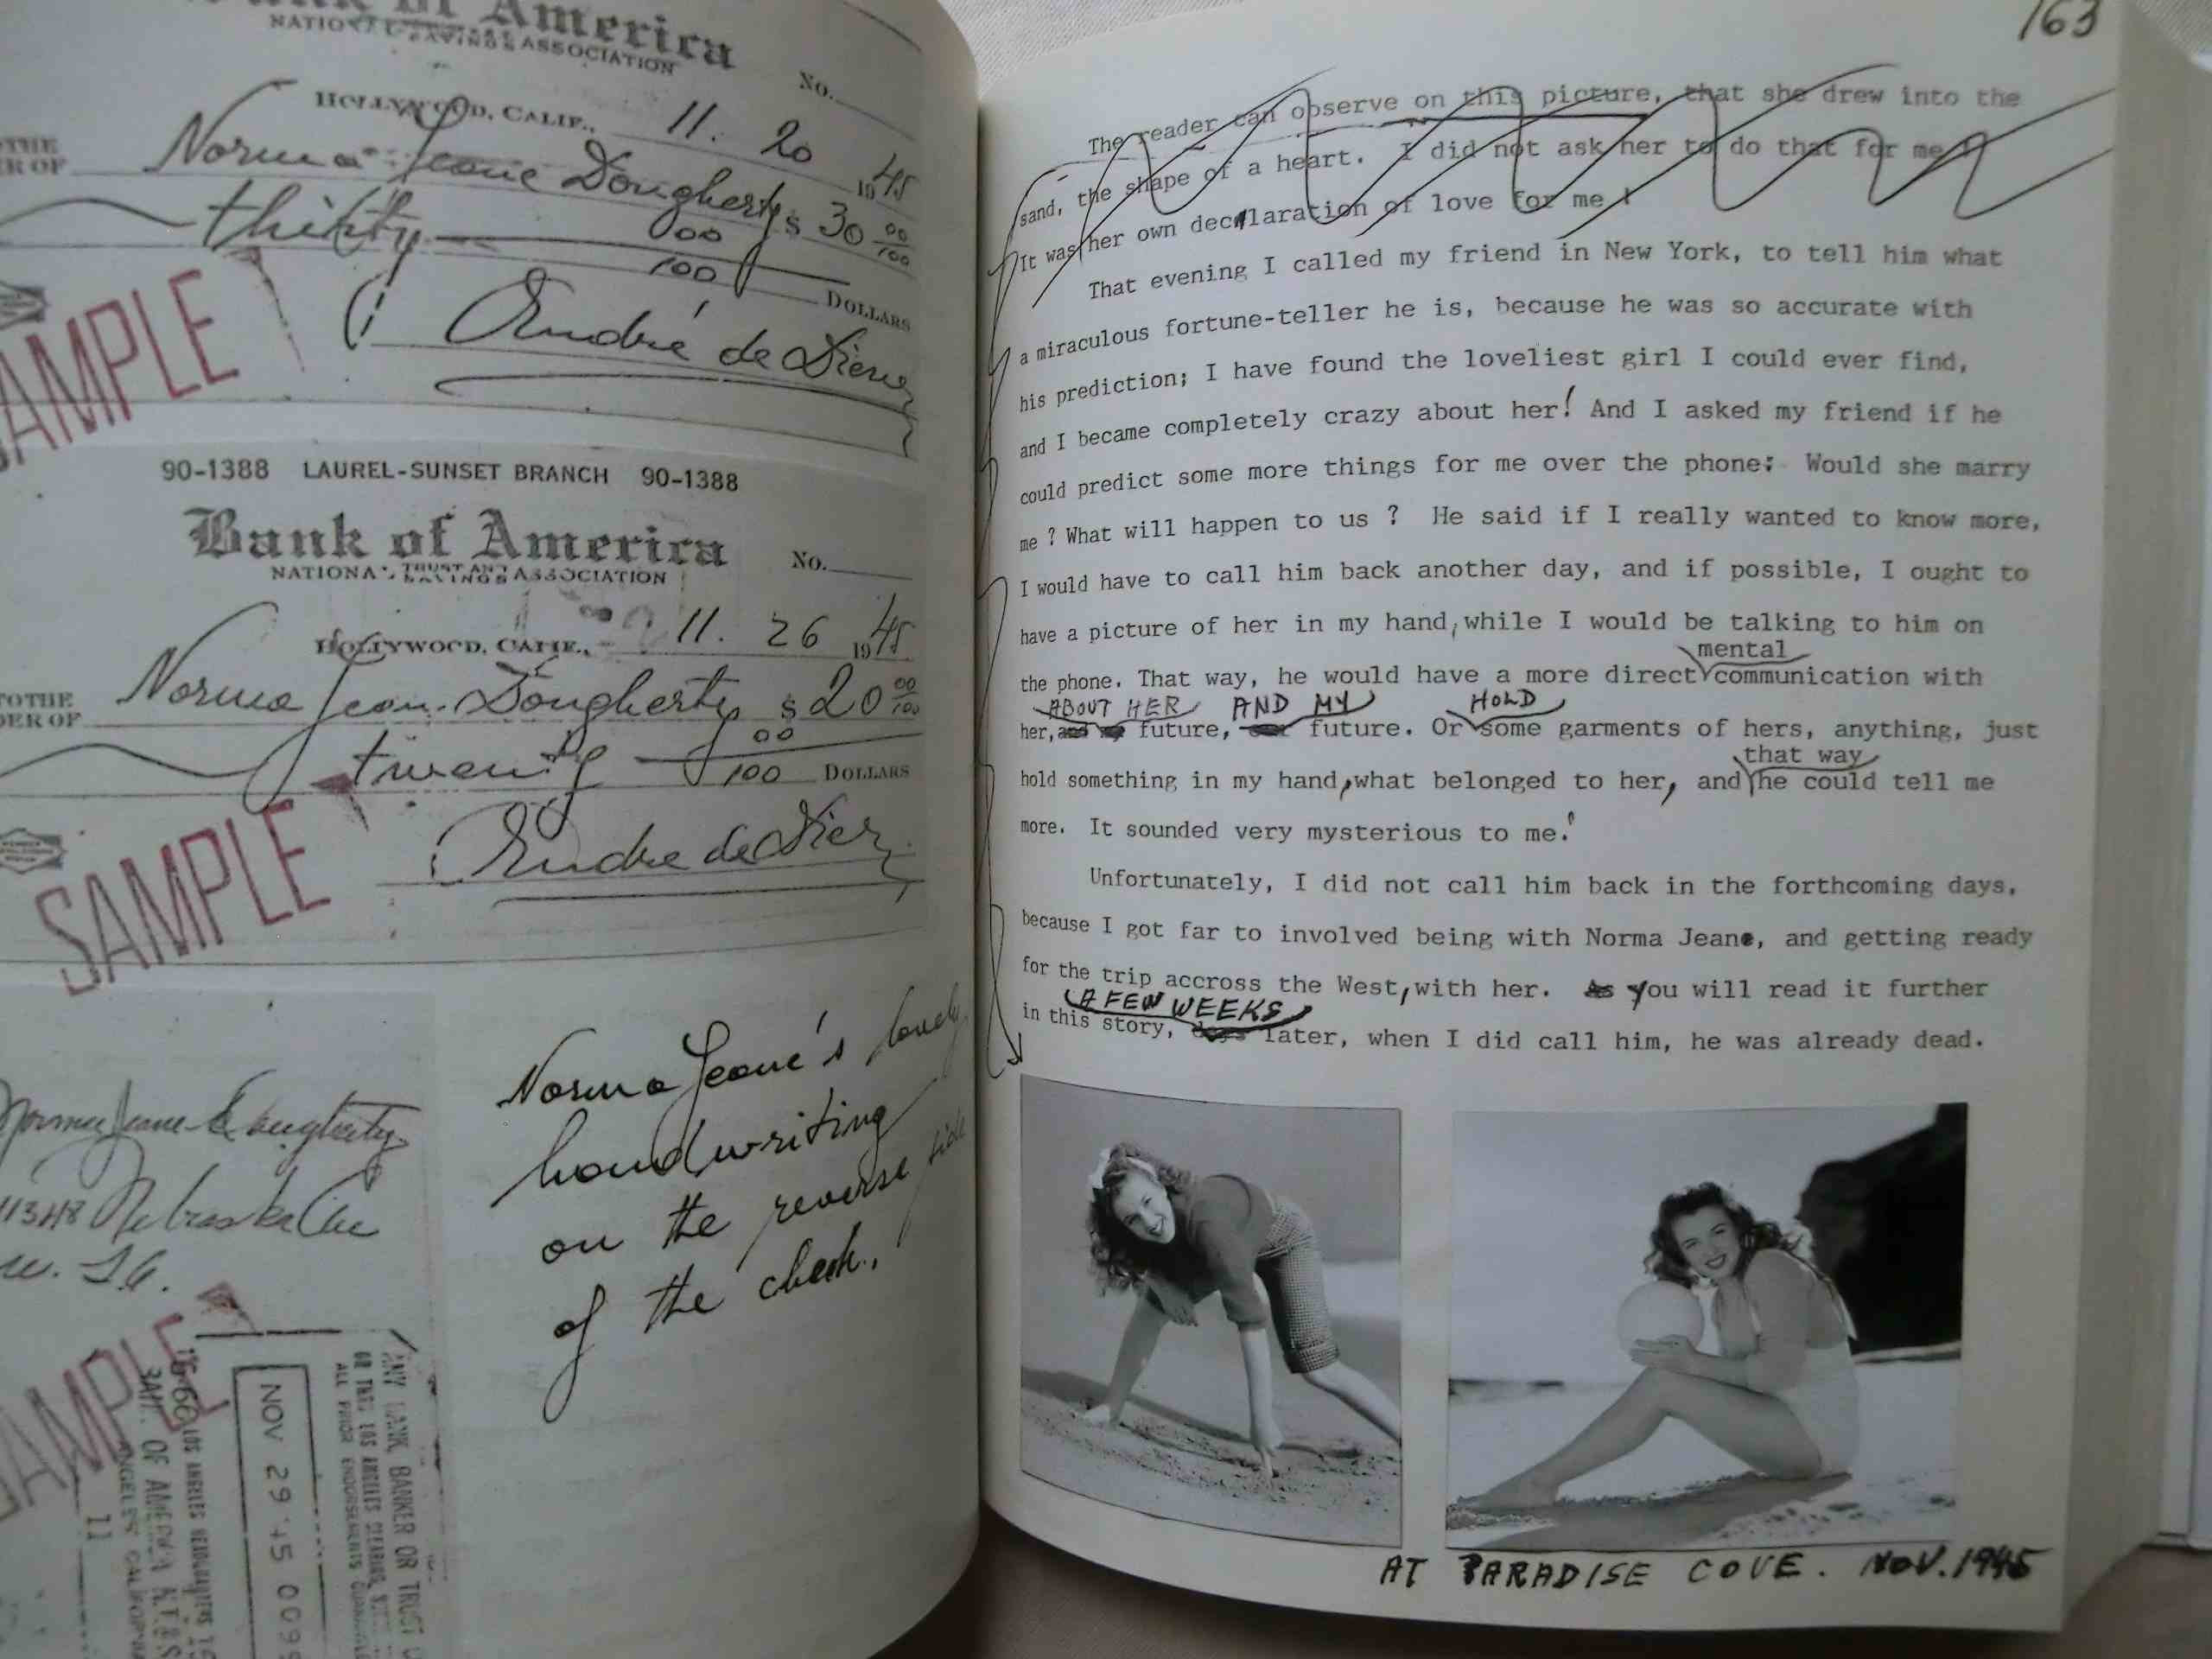 Bank of America
NATIONAL SAVINGS ASSOCIATION
No.
HOLLYWOOD, CALIF., 11. 20 1945
TO THE
ORDER OF Norma Jeane Dougherty $ 30 00/100
thirty 00/100 DOLLARS
André de Dienes
SAMPLE
90-1388 LAUREL-SUNSET BRANCH 90-1388
Bank of America
NATIONAL TRUST AND SAVINGS ASSOCIATION
No.
HOLLYWOOD, CALIF., 11. 26 1945
TO THE
ORDER OF Norma Jean Dougherty $ 20 00/100
twenty 00/100 DOLLARS
André de Dienes
SAMPLE
Norma Jeane Dougherty
11348 Nebraska Ave
SAMPLE
NOV 29 '45
ANY BANK, BANKER OR TRUST
OR THRU LOS ANGELES CLEARING
ALL PRIOR ENDORSEMENTS
LOS ANGELES HEADQUARTERS
BANK OF AMERICA N.T.&S.
LOS ANGELES CALIFORNIA
11
Norma Jeane's lovely
handwriting
on the reverse side
of the check.
163
The reader can observe on this picture, that she drew into the
sand, the shape of a heart. I did not ask her to do that for me !
It was her own declaration of love for me !
That evening I called my friend in New York, to tell him what
a miraculous fortune-teller he is, because he was so accurate with
his prediction; I have found the loveliest girl I could ever find,
and I became completely crazy about her! And I asked my friend if he
could predict some more things for me over the phone: Would she marry
me ? What will happen to us ? He said if I really wanted to know more,
I would have to call him back another day, and if possible, I ought to
have a picture of her in my hand, while I would be talking to him on
mental
the phone. That way, he would have a more direct communication with
ABOUT HER AND MY HOLD
her, future, future. Or some garments of hers, anything, just
that way
hold something in my hand, what belonged to her, and he could tell me
more. It sounded very mysterious to me!
Unfortunately, I did not call him back in the forthcoming days,
because I got far to involved being with Norma Jeane, and getting ready
for the trip accross the West, with her. As you will read it further
A FEW WEEKS
in this story, days later, when I did call him, he was already dead.
AT PARADISE COVE. NOV. 1945